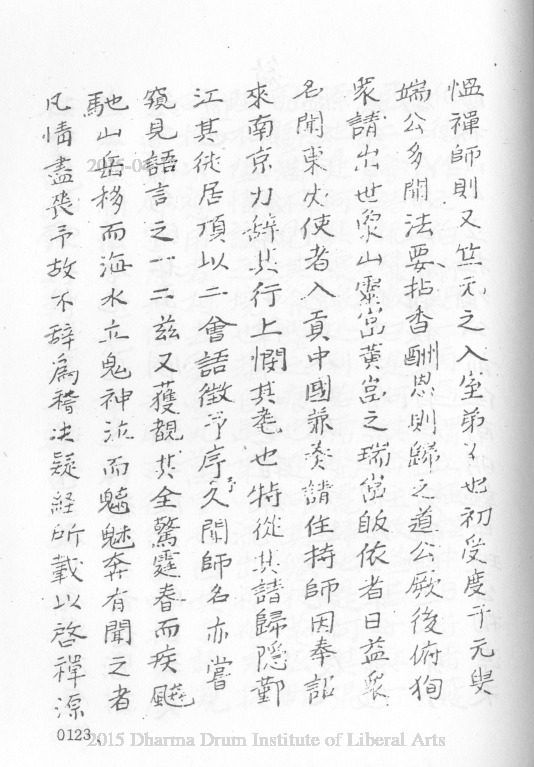 慍禪師則又竺元之入室弟子也初受度于元叟
端公多聞法要拈香酬恩則歸之道公厥後俯狥
衆請出世象山靈岩黃岩之瑞岩皈依者日益衆
名聞東夷使者入貢中國兼奏請住持師因奉詔
來南京力辭其行上憫其耄也特從其請歸隱鄞
江其徒居頂以二會語徵予序予久聞師名亦嘗
窺見語言之一二茲又獲覩其全驚霆春而疾飇
馳山岳移而海水立鬼神泣而魑魅奔有聞之者
凡情盡喪予故不辭爲稽決疑經所載以啓禪源
0123
2015 Dharma Drum Institute of Liberal Arts